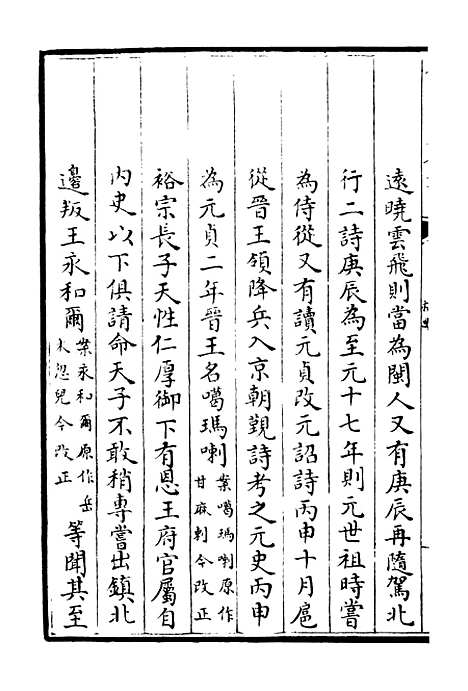 遠曉雲飛則當為閩人又有庚辰再隨駕北
行二詩庚辰為至元十七年則元世祖時嘗
為侍從又有讀元貞改元詔詩丙申十月扈
從晉王領降兵入京朝覲詩考之元史丙申
為元貞二年晉王名噶瑪喇案噶瑪喇原作甘麻剌今改正
裕宗長子天性仁厚御下有恩王府官屬自
内史以下俱請命天子不敢稍專嘗出鎮北
邊叛王永和爾案永和爾原作岳木忽兒今改正等聞其至